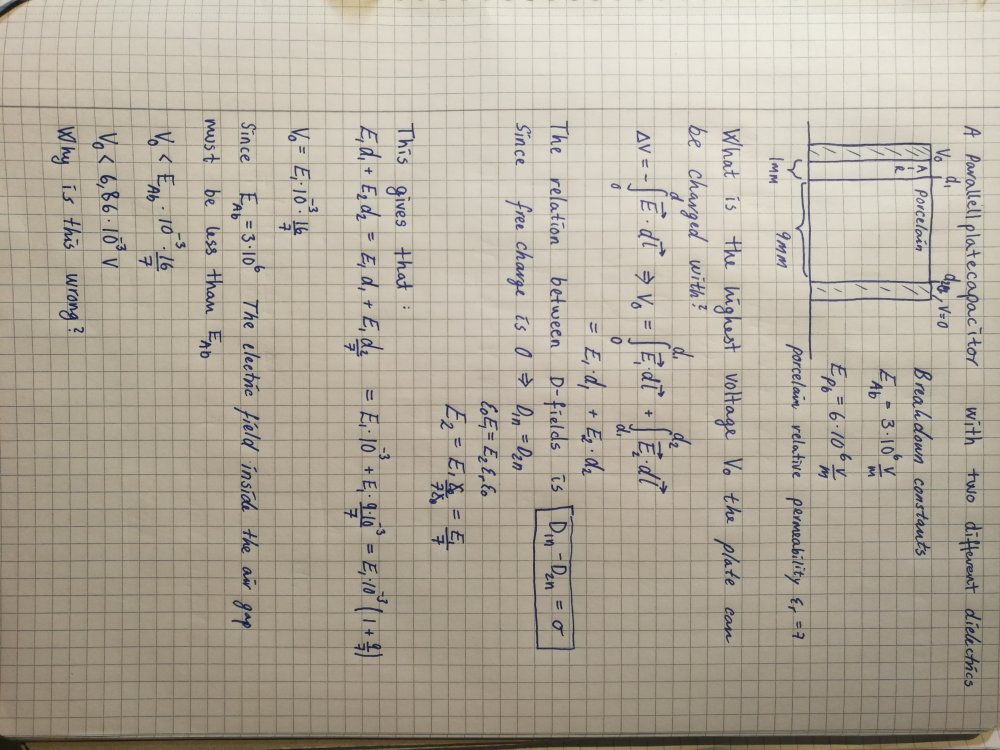 A Parallellplatecapacitor with two different dielectrics
V₀ d₁ d₂, V=0
AIR Porcelain
1mm 9mm
Breakdown constants
E_Ab = 3·10⁶ V/m
E_Pb = 6·10⁶ V/m
porcelain relative permeability εr = 7
What is the highest voltage V₀ the plate can
be charged with?
ΔV = -∫₀^d E⃗·dl⃗ ⇒ V₀ = ∫₀^d₁ E⃗₁·dl⃗ + ∫_d₁^d₂ E⃗₂·dl⃗
= E₁·d₁ + E₂·d₂
The relation between D-fields is D₁n - D₂n = σ
Since free charge is 0 ⇒ D₁n = D₂n
ε₀E₁ = E₂εrε₀
E₂ = E₁ε₀/7ε₀ = E₁/7
This gives that:
E₁d₁ + E₂d₂ = E₁d₁ + E₁d₂/7 = E₁·10⁻³ + E₁·9·10⁻³/7 = E₁·10⁻³(1 + 9/7)
V₀ = E₁·10⁻³·16/7
Since E_Ab = 3·10⁶ The electric field inside the air gap
must be less than E_Ab
V₀ < E_Ab·10⁻³·16/7
V₀ < 6,86·10⁻³ V
Why is this wrong?